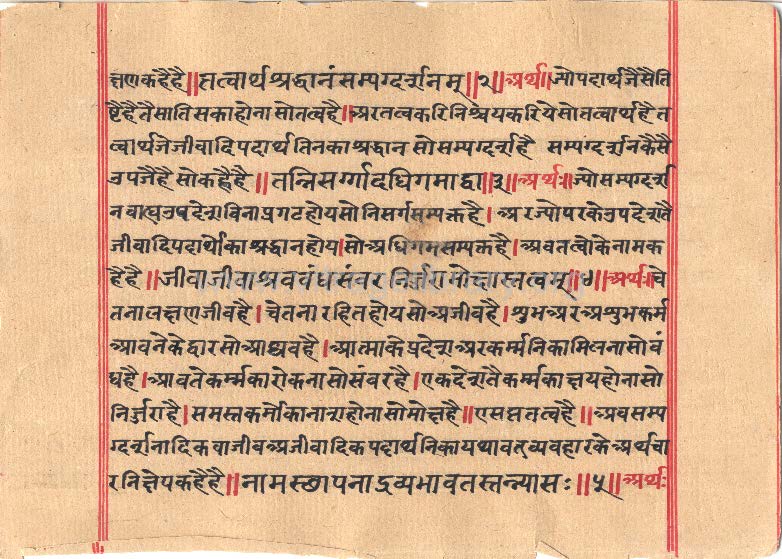 क्षणकहैहै॥तत्वार्थश्रद्धानंसम्यग्दर्शनम्॥२॥अर्थ॥ज्योपदार्थजैसैति
ष्टैहैतैसातिसकाहोनासोतत्वहै॥अरतत्वकरिनिश्चयकरियेसोतत्वार्थहैत
त्वार्थजेजीवादिपदार्थतिनकाश्रद्धानसोसम्यग्दर्शनहै सम्यग्दर्शनकैसै
उपजैहैसोकहैहै॥तन्निसर्ग्गादधिगमाद्वा॥३॥अर्थः॥ज्योसम्यग्दर्श
नवाह्यउपदेशविनाप्रगटहोयसोनिसर्गसम्यक्तहै।अरज्योपरकेउपदेशतै
जीवादिपदार्थोकाश्रद्धानहोय।सोअधिगमसम्यक्तहै।अवतत्वोकेनामक
हैहै॥जीवाजीवाश्रवबंधसंवरनिर्ज्जरामोक्षास्तत्वम्॥४॥अर्थः॥चे
तनालक्षणजीवहै।चेतनारहितहोयसोअजीवहै।शुभअरअशुभकर्म
आवनेकेद्वारसोआश्रवहै।आत्माकेप्रदेशअरकर्म्मनिकामिलनासोवं
धहै।आवतेकर्म्मकारोकनासोसंवरहै।एकदेशतैकर्म्मकाक्षयहोनासो
निर्ज्जराहै।समस्तकर्मोकानाशहोनासोमोक्षहै॥एसप्ततत्वहै॥अवसम्य
ग्दर्शनादिकवाजीवअजीवादिकपदार्थनिकायथावत्व्यवहारकेअर्थचा
रनिक्षेपकहैहै॥नामस्छापनाद्रव्यभावतस्तन्न्यासः॥५॥अर्थः